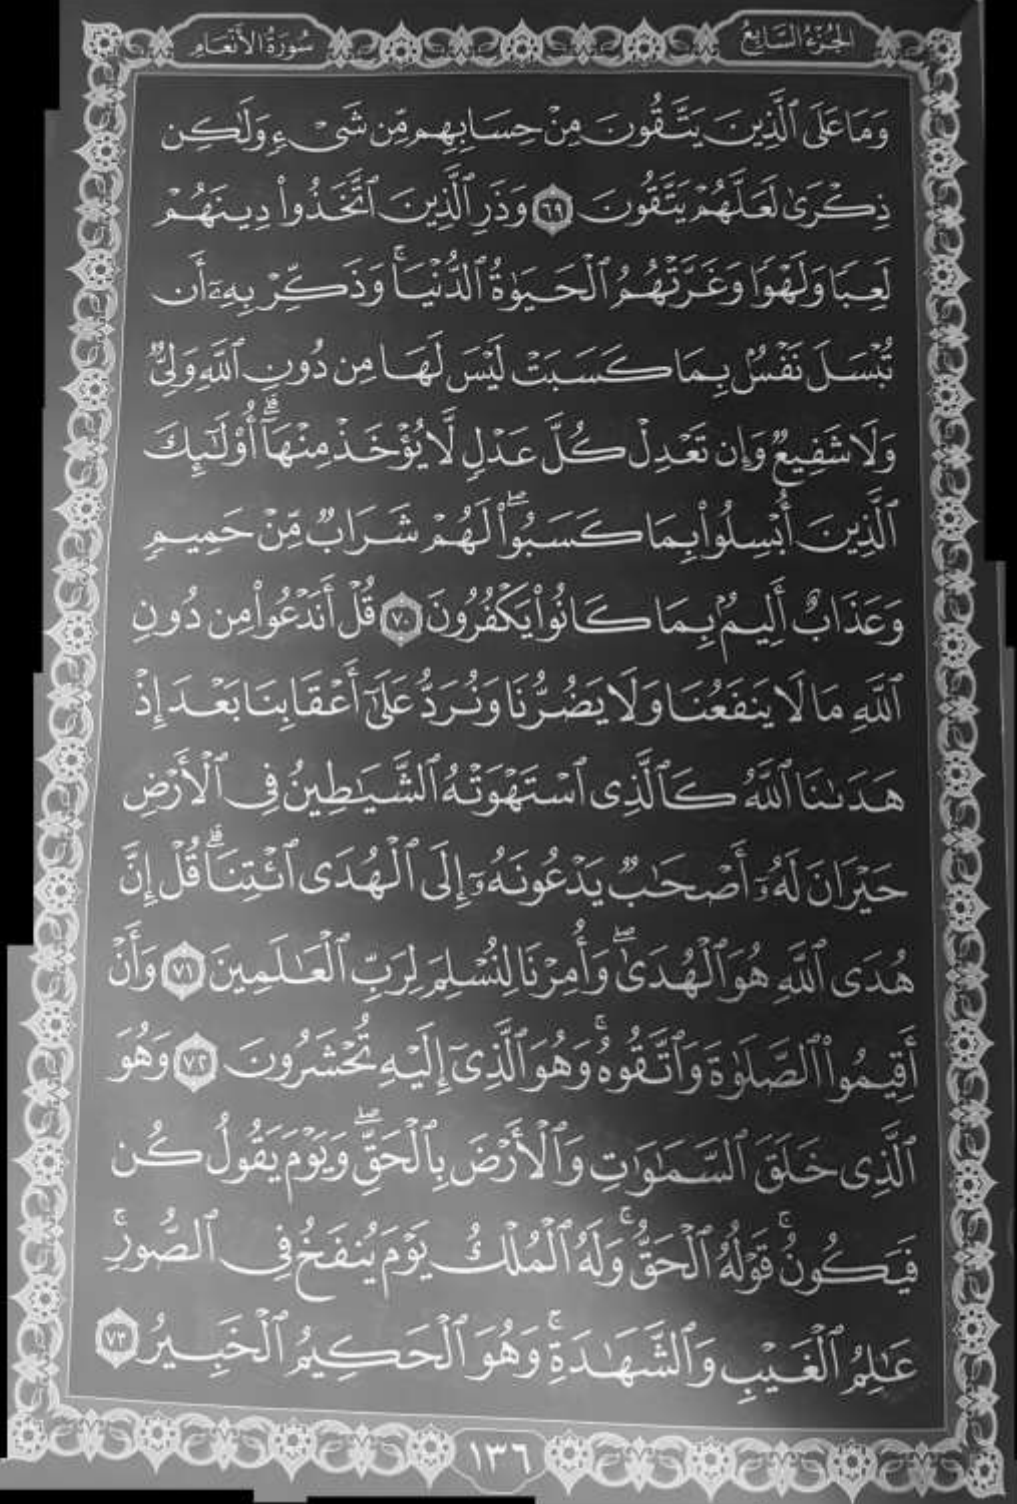 سُورَةُ الأَنْعَامِ
الجُزْءُ السَّابِعُ
وَمَا عَلَى ٱلَّذِينَ يَتَّقُونَ مِنْ حِسَابِهِم مِّن شَىْءٍ وَلَٰكِن
ذِكْرَىٰ لَعَلَّهُمْ يَتَّقُونَ ٦٩ وَذَرِ ٱلَّذِينَ ٱتَّخَذُوا۟ دِينَهُمْ
لَعِبًا وَلَهْوًا وَغَرَّتْهُمُ ٱلْحَيَوٰةُ ٱلدُّنْيَا ۚ وَذَكِّرْ بِهِۦٓ أَن
تُبْسَلَ نَفْسٌۢ بِمَا كَسَبَتْ لَيْسَ لَهَا مِن دُونِ ٱللَّهِ وَلِىٌّ
وَلَا شَفِيعٌ وَإِن تَعْدِلْ كُلَّ عَدْلٍ لَّا يُؤْخَذْ مِنْهَآ ۗ أُو۟لَٰٓئِكَ
ٱلَّذِينَ أُبْسِلُوا۟ بِمَا كَسَبُوا۟ ۖ لَهُمْ شَرَابٌ مِّنْ حَمِيمٍ
وَعَذَابٌ أَلِيمٌۢ بِمَا كَانُوا۟ يَكْفُرُونَ ٧٠ قُلْ أَنَدْعُوا۟ مِن دُونِ
ٱللَّهِ مَا لَا يَنفَعُنَا وَلَا يَضُرُّنَا وَنُرَدُّ عَلَىٰٓ أَعْقَابِنَا بَعْدَ إِذْ
هَدَىٰنَا ٱللَّهُ كَٱلَّذِى ٱسْتَهْوَتْهُ ٱلشَّيَٰطِينُ فِى ٱلْأَرْضِ
حَيْرَانَ لَهُۥٓ أَصْحَٰبٌ يَدْعُونَهُۥٓ إِلَى ٱلْهُدَى ٱئْتِنَا ۗ قُلْ إِنَّ
هُدَى ٱللَّهِ هُوَ ٱلْهُدَىٰ ۖ وَأُمِرْنَا لِنُسْلِمَ لِرَبِّ ٱلْعَٰلَمِينَ ٧١ وَأَنْ
أَقِيمُوا۟ ٱلصَّلَوٰةَ وَٱتَّقُوهُ ۚ وَهُوَ ٱلَّذِىٓ إِلَيْهِ تُحْشَرُونَ ٧٢ وَهُوَ
ٱلَّذِى خَلَقَ ٱلسَّمَٰوَٰتِ وَٱلْأَرْضَ بِٱلْحَقِّ ۖ وَيَوْمَ يَقُولُ كُن
فَيَكُونُ ۚ قَوْلُهُ ٱلْحَقُّ ۚ وَلَهُ ٱلْمُلْكُ يَوْمَ يُنفَخُ فِى ٱلصُّورِ ۚ
عَٰلِمُ ٱلْغَيْبِ وَٱلشَّهَٰدَةِ ۚ وَهُوَ ٱلْحَكِيمُ ٱلْخَبِيرُ ٧٣
١٣٦